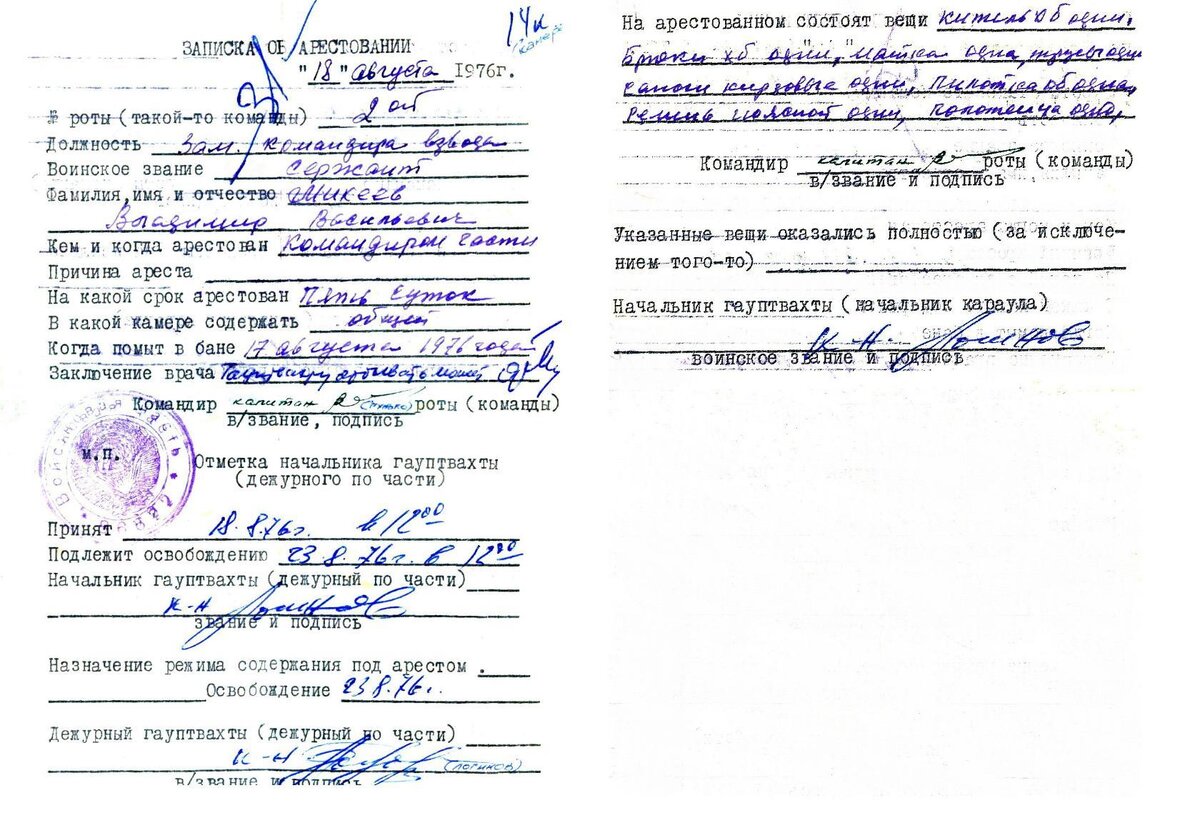 14к
камера
ЗАПИСКА ОБ АРЕСТОВАНИИ
"18" августа 1976г.
№ роты (такой-то команды) 2 от
Должность Зам. командира взвода
Воинское звание сержант
Фамилия, имя и отчество Микеев
Владимир Васильевич
Кем и когда арестован Командиром части
Причина ареста
На какой срок арестован Пять суток
В какой камере содержать общей
Когда помыт в бане 17 августа 1976 года
Заключение врача отбывать может
Командир капитан роты (команды)
в/звание, подпись
м.п.
Войсковая часть
Отметка начальника гауптвахты
(дежурного по части)
Принят 18.8.76г. в 12 00
Подлежит освобождению 23.8.76г. в 12 00
Начальник гауптвахты (дежурный по части)
к-н
звание и подпись
Назначение режима содержания под арестом .
Освобождение 23.8.76г.
Дежурный гауптвахты (дежурный по части)
к-н (Логинов)
в/звание и подпись
На арестованном состоят вещи китель хб один,
Брюки хб одни, майка одна, трусы одни
сапоги кирзовые одни, Пилотка хб одна,
Ремень поясной один, полотенца одно,
Командир капитан роты (команды)
в/звание и подпись
Указанные вещи оказались полностью (за исключе-
нием того-то)
Начальник гауптвахты (начальник караула)
к-н Логинов
воинское звание и подпись